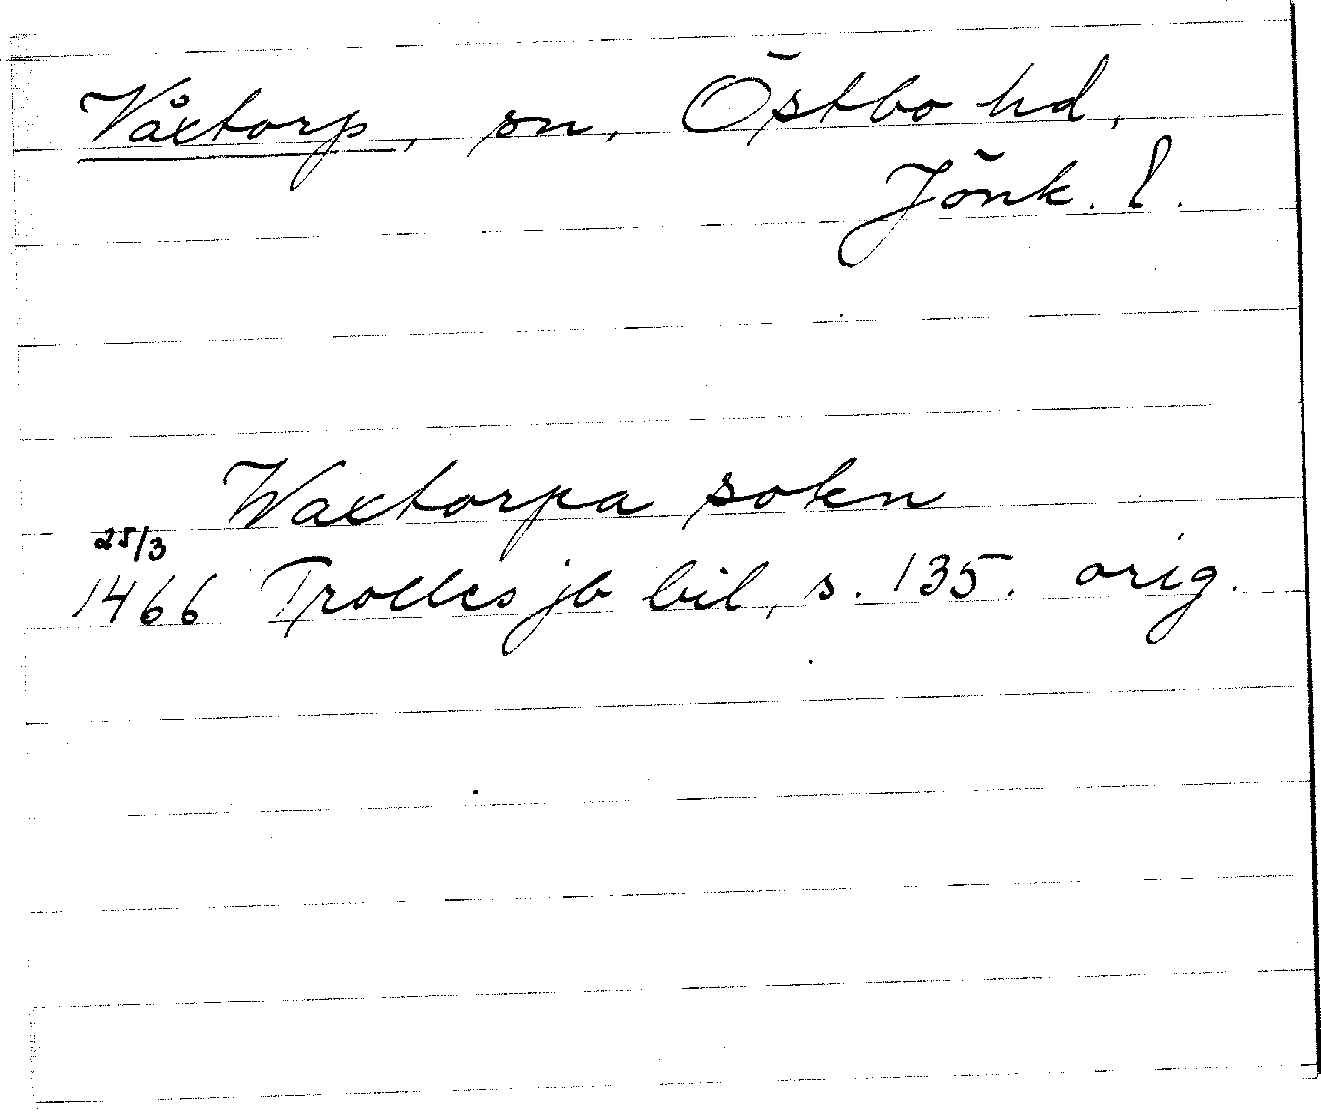 Våxtorp, sn, Östbo hd,
Jönk. l.
Waxtorpa sokn
25/3
1466 Trolles jb bil, s. 135. orig.